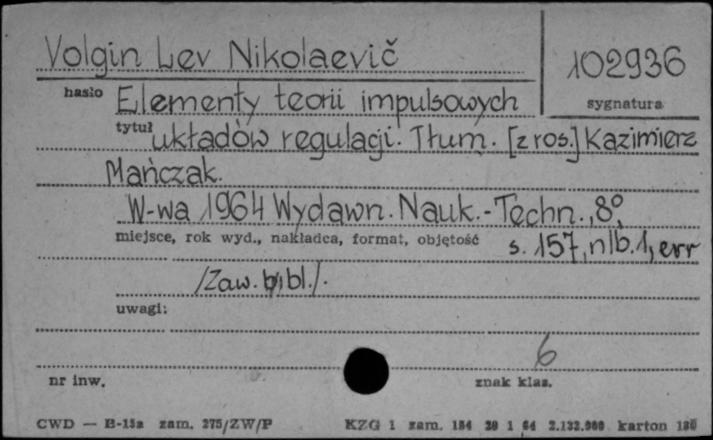 Volgin Lev Nikolaevič
102936
hasło Elementy teorii impulsowych
sygnatura
tytuł układów regulacji. Tłum. [z ros.] Kazimierz
Mańczak.
W-wa 1964 Wydawn. Nauk.-Techn., 8°,
miejsce, rok wyd., nakładca, format, objętość s. 157, nlb. 1, err
/Zaw. bibl./.
uwagi:
6
nr inw. znak klas.
CWD — B-13a zam. 275/ZW/P KZG 1 zam. 184 20 1 64 2.132.000 karton 180